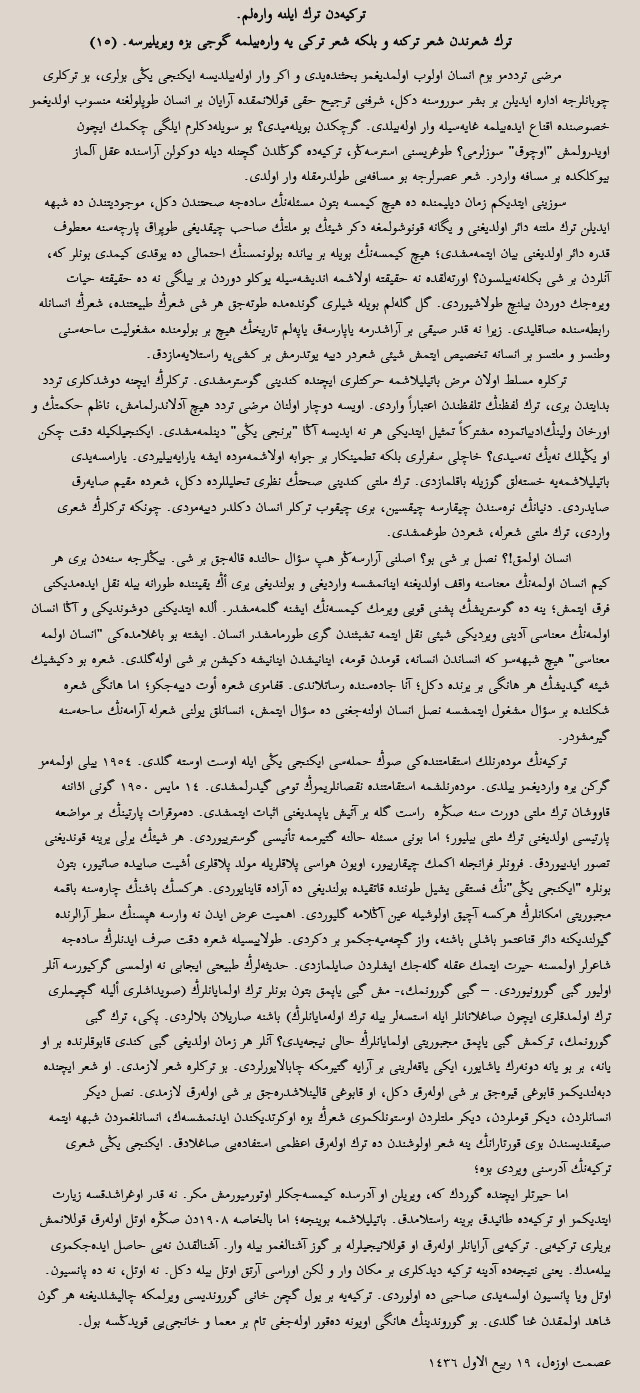 تركیه‌دن ترك ایلنه واره‌لم.
ترك شعرندن شعر تركنه و بلكه شعر تركی یه واره‌بیلمه گوجی بزه ویریلیرسه. (١٥)
مرضی ترددمز بزم انسان اولوب اولمدیغمز بحثنده‌یدی و اكر وار اوله‌بیلدیسه ایكنجی یڭی بزلری، بو تركلری
چوبانلرجه اداره ایدیلن بر بشر سوروسنه دكل، شرفنی ترجیح حقی قوللانمقده آرایان بر انسان طوپلولغنه منسوب اولدیغمز
خصوصنده اقناع ایده‌بیلمه غایه‌سیله وار اوله‌بیلدی. گرچكدن بویله‌میدی؟ بو سویله‌دكلرم ایلگی چكمك ایچون
اویدرولمش "اوچوق" سوزلرمی؟ طوغریسنی استرسه‌ڭز، تركیه‌ده گوڭلدن گچنله دیله دوكولن آراسنده عقل آلماز
بیوكلكده بر مسافه واردر. شعر عصرلرجه بو مسافه‌یی طولدرمقله وار اولدی.
سوزینی ایتدیكم زمان دیلیمنده ده هیچ كیمسه بتون مسئله‌نڭ ساده‌جه صحتندن دكل، موجودیتندن ده شبهه
ایدیلن ترك ملتنه دائر اولدیغنی و یگانه قونوشولمغه دكر شیئڭ بو ملتڭ صاحب چیقدیغی طوپراق پارچه‌سنه معطوف
قدره دائر اولدیغنی بیان ایتمه‌مشدی؛ هیچ كیمسه‌نڭ بویله بر بیانده بولونمسنڭ احتمالی ده یوقدی كیمدی بونلر كه،
آنلردن بر شی بكله‌نه‌بیلسون؟ اورته‌لقده نه حقیقته اولاشمه اندیشه‌سیله یوكلو دوردن بر بیلگی نه ده حقیقته حیات
ویره‌جك دوردن بیلنج طولاشیوردی. گل گله‌لم بویله شیلری گونده‌مده طوته‌جق هر شی شعرڭ طبیعتنده، شعرڭ انسانله
رابطه‌سنده صاقلیدی. زیرا نه قدر صیقی بر آراشدرمه یاپارسه‌ق یاپه‌لم تاریخڭ هیچ بر بولومنده مشغولیت ساحه‌سنی
وطنسز و ملتسز بر انسانه تخصیص ایتمش شیئی شعردر دییه یوتدرمش بر كشی‌یه راستلایه‌مازدق.
تركلره مسلط اولان مرض باتیلیلاشمه حركتلری ایچنده كندینی گوسترمشدی. تركلرڭ ایچنه دوشدكلری تردد
بدایتدن بری، ترك لفظنڭ تلفظندن اعتباراً واردی. اویسه دوچار اولنان مرضی تردد هیچ آدلاندرلمامش، ناظم حكمتڭ و
اورخان ولینڭ‌ادبیاتمزده مشتركاً تمثیل ایتدیكی هر نه ایدیسه آڭا "برنجی یڭی" دینلمه‌مشدی. ایكنجیلكیله دقت چكن
او یڭیلك نه‌یڭ نه‌سیدی؟ خاچلی سفرلری بلكه تطمینكار بر جوابه اولاشمه‌مزده ایشه یارایه‌بیلیردی. یارامسه‌یدی
باتیلیلاشمه‌یه خسته‌لق گوزیله باقلمازدی. ترك ملتی كندینی صحتڭ نظری تحلیللرده دكل، شعرده مقیم صایه‌رق
صایدردی. دنیانڭ نره‌سندن چیقارسه چیقسین، بری چیقوب تركلر انسان دكلدر دییه‌مزدی. چونكه تركلرڭ شعری
واردی، ترك ملتی شعرله، شعردن طوغمشدی.
انسان اولمق!؟ نصل بر شی بو؟ اصلنی آرارسه‌ڭز هپ سؤال حالنده قاله‌جق بر شی. بیڭلرجه سنه‌دن بری هر
كیم انسان اولمه‌نڭ معناسنه واقف اولدیغنه اینانمشسه واردیغی و بولندیغی یری أڭ یقیننده طورانه بیله نقل ایده‌مدیكنی
فرق ایتمش؛ ینه ده گوستریشڭ پشنی قویی ویرمك كیمسه‌نڭ ایشنه گلمه‌مشدر. ألده ایتدیكنی دوشوندیكی و آڭا انسان
اولمه‌نڭ معناسی آدینی ویردیكی شیئی نقل ایتمه تشبثندن گری طورمامشدر انسان. ایشته بو باغلامده‌كی "انسان اولمه
معناسی" هیچ شبهه‌سز كه انساندن انسانه، قومدن قومه، اینانیشدن اینانیشه دكیشن بر شی اوله‌گلدی. شعره بو دكیشیك
شیئه گیدیشڭ هر هانگی بر یرنده دكل؛ آنا جاده‌سنده رساتلاندی. قفامزی شعره أوت دییه‌جكز؛ اما هانگی شعره
شكلنده بر سؤال مشغول ایتمشسه نصل انسان اولنه‌جغنی ده سؤال ایتمش، انسانلق یولنی شعرله آرامه‌نڭ ساحه‌سنه
گیرمشزدر.
تركیه‌نڭ موده‌رنلك استقامتنده‌كی صوڭ حمله‌سی ایكنجی یڭی ایله اوست اوسته گلدی. ١٩٥٤ ییلی اولمه‌مز
گركن یره واردیغمز ییلدی. موده‌رنلشمه استقامتنده نقصانلریمزڭ تومی گیدرلمشدی. ١٤ مایس ١٩٥٠ گونی اذاننه
قاووشان ترك ملتی دورت سنه صڭره راست گله بر آتیش یاپمدیغنی اثبات ایتمشدی. ده‌موقرات پارتینڭ بر مواضعه
پارتیسی اولدیغنی ترك ملتی بیلیور؛ اما بونی مسئله حالنه گتیرممه تأنیسی گوسترییوردی. هر شیئڭ یرلی یرینه قوندیغنی
تصور ایدییوردق. فرونلر فرانجله اكمك چیقارییور، اویون هواسی پلاقلریله مولد پلاقلری أشیت صاییده صاتیور، بتون
بونلره "ایكنجی یڭی"نڭ فستقی یشیل طوننده قاتقیده بولندیغی ده آراده قاینایوردی. هركسڭ باشنڭ چاره‌سنه باقمه
مجبوریتی امكانلرڭ هركسه آچیق اولوشیله عین آڭلامه گلیوردی. اهمیت عرض ایدن نه وارسه هپسنڭ سطر آرالرنده
گیزلندیكنه دائر قناعتمز باشلی باشنه، واز گچه‌میه‌جكمز بر دكردی. طولاییسیله شعره دقت صرف ایدنلرڭ ساده‌جه
شاعرلر اولمسنه حیرت ایتمك عقله گله‌جك ایشلردن صایلمازدی. حدیثه‌لرڭ طبیعتی ایجابی نه اولمسی گركیورسه آنلر
اولیور گبی گورونیوردی. – گبی گورونمك،- مش گبی یاپمق بتون بونلر ترك اولمایانلرڭ (صویداشلری ألیله گچیملری
ترك اولمدقلری ایچون صاغلانانلر ایله استسه‌لر بیله ترك اوله‌مایانلرڭ) باشنه صاریلان بلالردی. پكی، ترك گبی
گورونمك، تركمش گبی یاپمق مجبوریتی اولمایانلرڭ حالی نیجه‌یدی؟ آنلر هر زمان اولدیغی گبی كندی قابوقلرنده بر او
یانه، بر بو یانه دونه‌رك یاشایور، ایكی یاقه‌لرینی بر آرایه گتیرمكه چابالایورلردی. بز تركلره شعر لازمدی. او شعر ایچنده
دبه‌لندیكمز قابوغی قیره‌جق بر شی اوله‌رق دكل، او قابوغی قالینلاشدره‌جق بر شی اوله‌رق لازمدی. نصل دیكر
انسانلردن، دیكر قوملردن، دیكر ملتلردن اوستونلكمزی شعرڭ بزه اوكرتدیكندن ایدنمشسه‌ك، انسانلغمزدن شبهه ایتمه
صیقندیسندن بزی قورتارانڭ ینه شعر اولوشندن ده ترك اوله‌رق اعظمی استفاده‌یی صاغلادق. ایكنجی یڭی شعری
تركیه‌نڭ آدرسنی ویردی بزه؛
اما حیرتلر ایچنده گوردك كه، ویریلن او آدرسده كیمسه‌جكلر اوتورمیورمش مكر. نه قدر اوغراشدقسه زیارت
ایتدیكمز او تركیه‌ده طانیدق برینه راستلامدق. باتیلیلاشمه بوینجه؛ اما بالخاصه ١٩٠٨دن صڭره اوتل اوله‌رق قوللانمش
بریلری تركیه‌یی. تركیه‌یی آرایانلر اوله‌رق او قوللانیجیلرله بر گوز آشنالغمز بیله وار. آشنالقدن نه‌یی حاصل ایده‌جكمزی
بیله‌مدك. یعنی نتیجه‌ده آدینه تركیه دیدكلری بر مكان وار و لكن اوراسی آرتق اوتل بیله دكل. نه اوتل، نه ده پانسیون.
اوتل ویا پانسیون اولسه‌یدی صاحبی ده اولوردی. تركیه‌یه بر یول گچن خانی گوروندیسی ویرلمكه چالیشلدیغنه هر گون
شاهد اولمقدن غنا گلدی. بو گوروندینڭ هانگی اویونه ده‌قور اوله‌جغی تام بر معما و خانجی‌یی قویدڭسه بول.
عصمت اوزه‌ل، ١٩ ربیع الاول ١٤٣٦